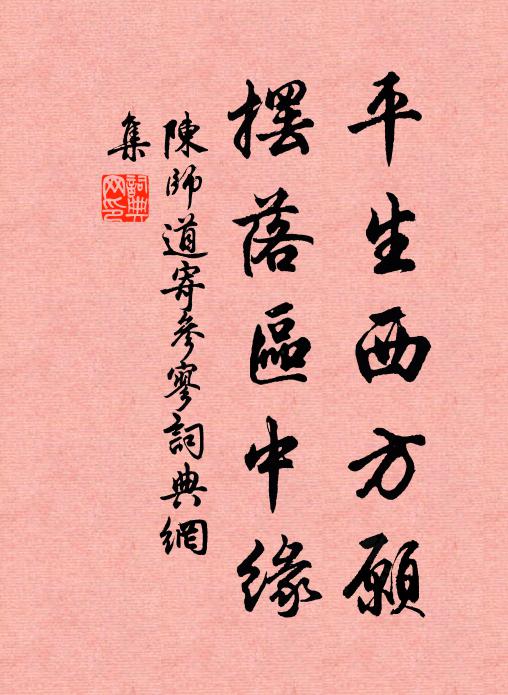 平生西方願
擺落區中緣
陳師道寄參寥詞典網
集
詞典
网印